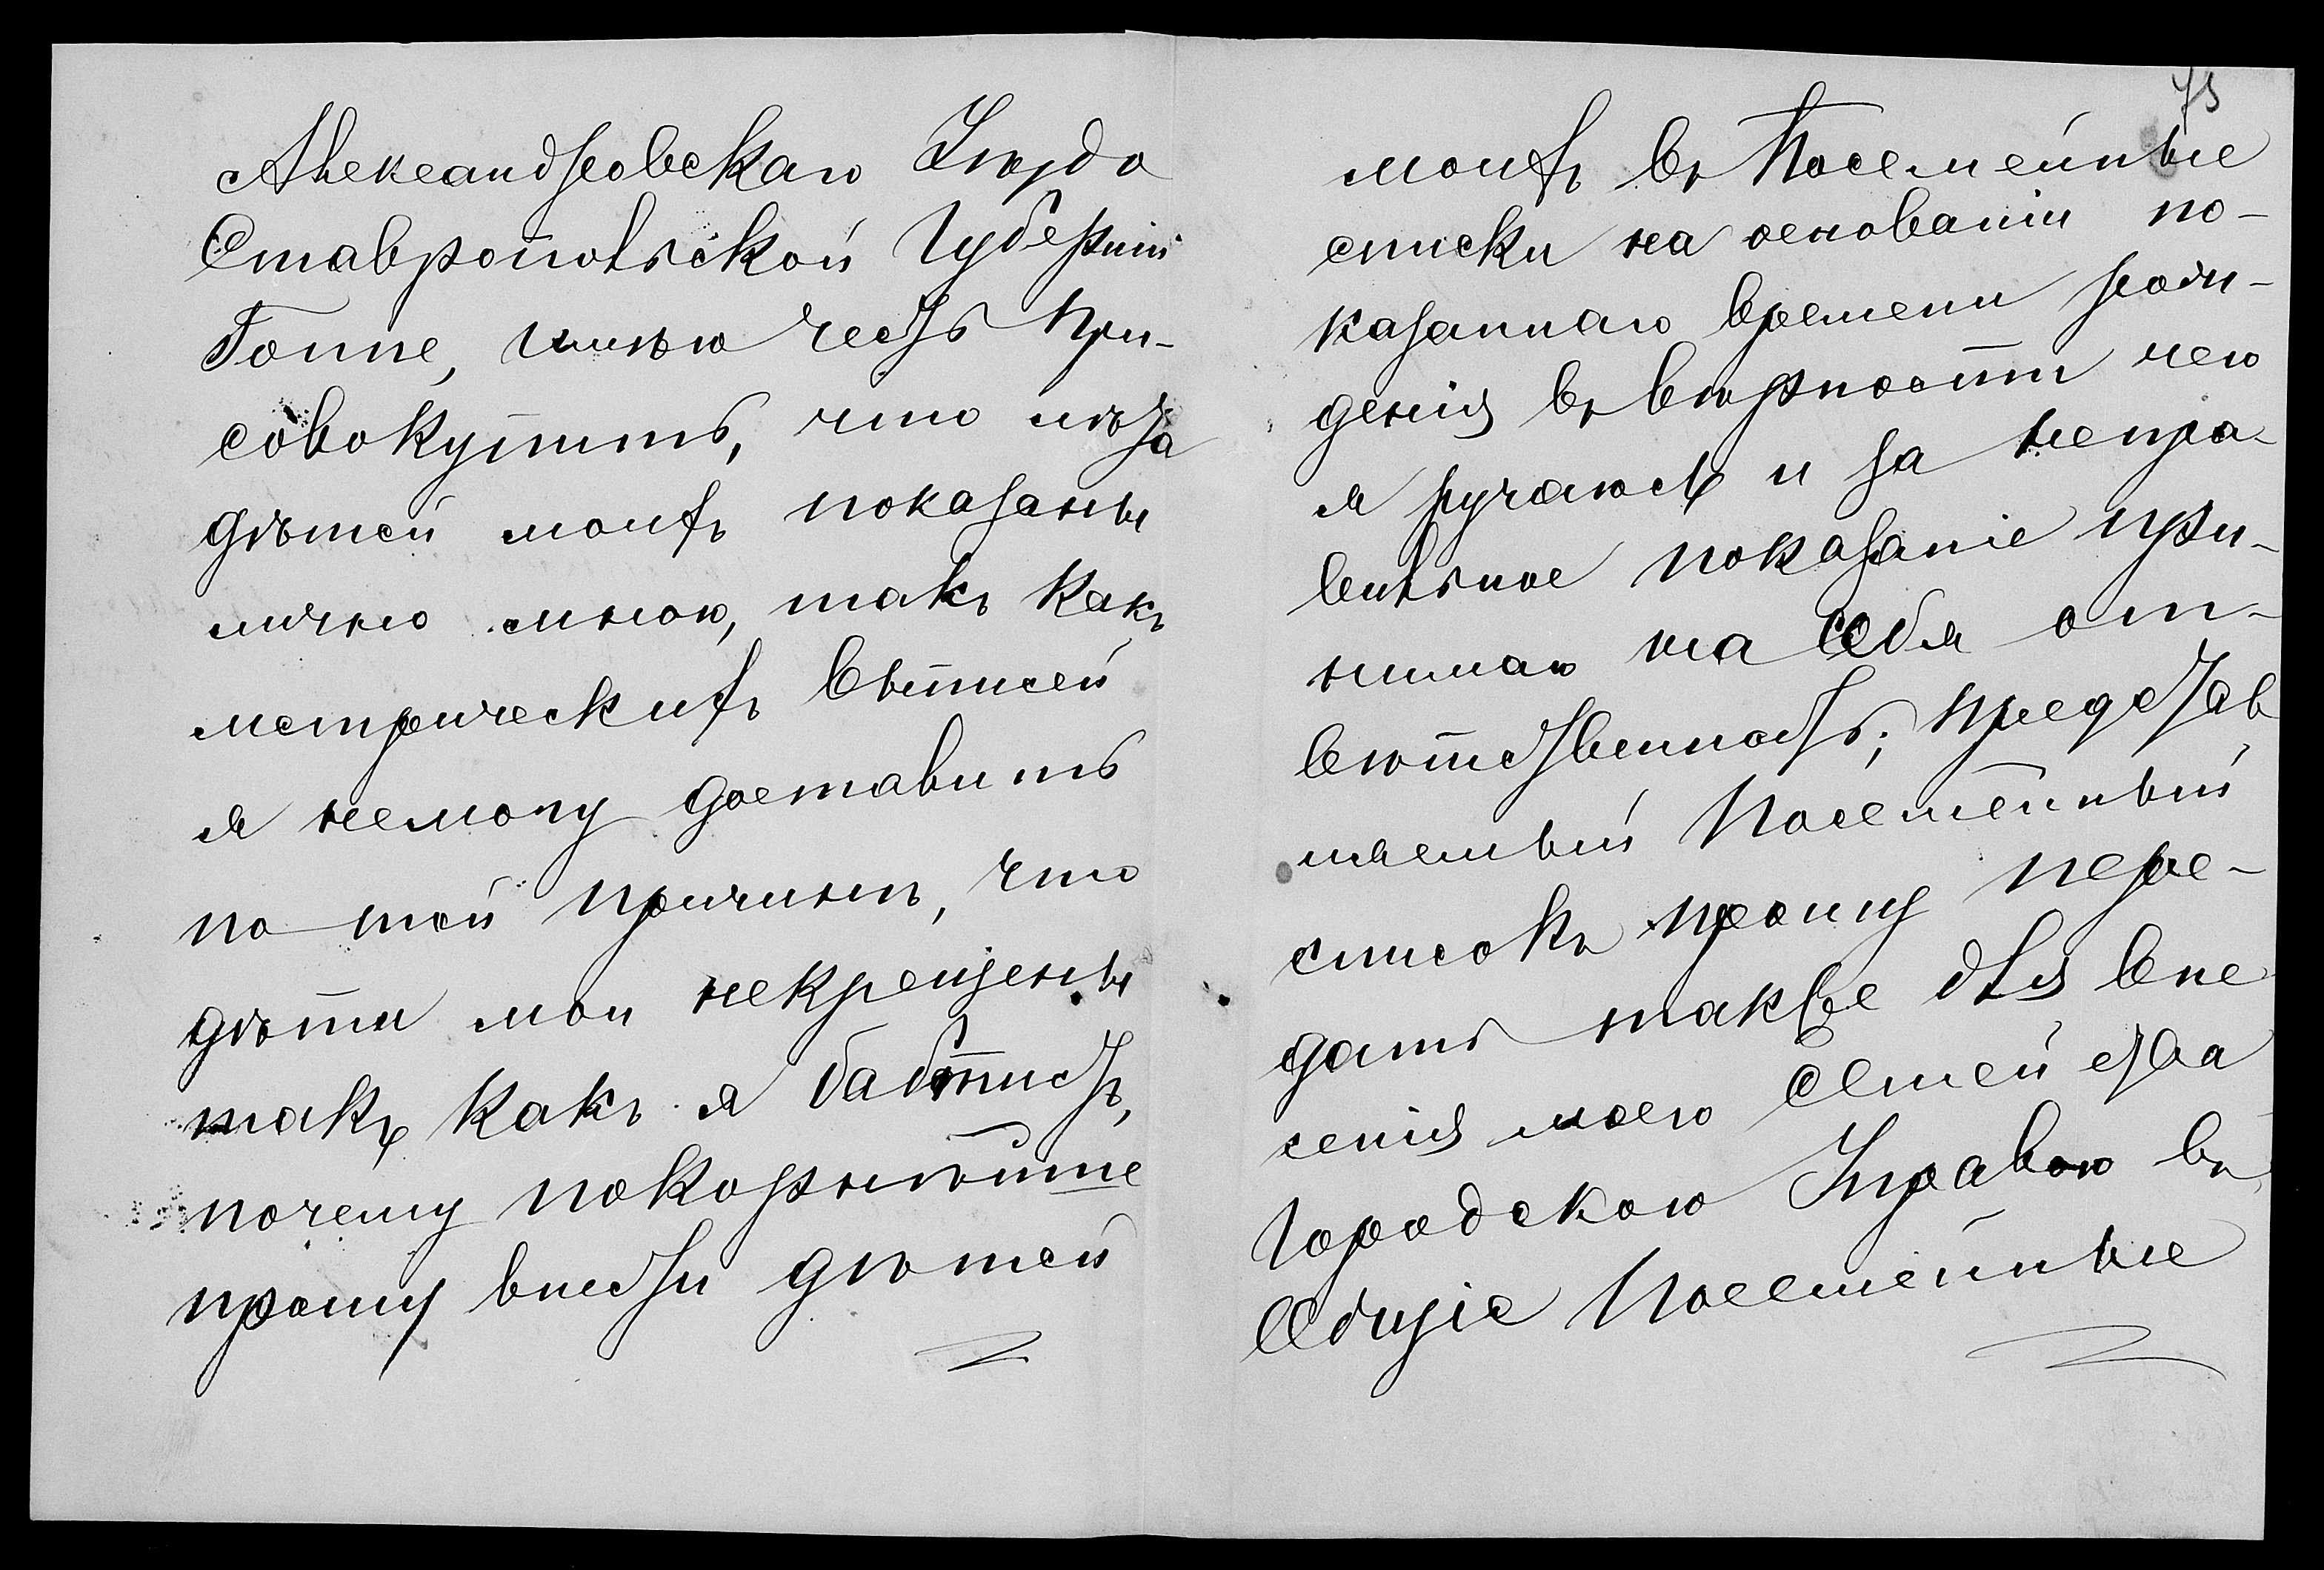 Александровскаго Уѣзда
Ставропольской Губерніи
Гоппе, имѣю честь при-
совокупить, что лѣта
дѣтей моихъ показаны
лично мною, такъ какъ
метрическихъ выписей
я немогу доставить
по той причинѣ, что
дѣти мои некрещены
такъ какъ я бабтистъ,
почему покорнѣйше
прошу внести дѣтей
75
моихъ въ Посемейные
списки на основаніи по-
казаннаго времени рож-
денія въ вѣрности чего
я ручаюсь и за непра-
вильное показаніе при-
нимаю на себя от-
вѣтственность; представ
ляемый Посемейный
списокъ прошу пере-
дать также для вне
сенія моего Семейства
Городскою Управою въ
Общіе Посемейные